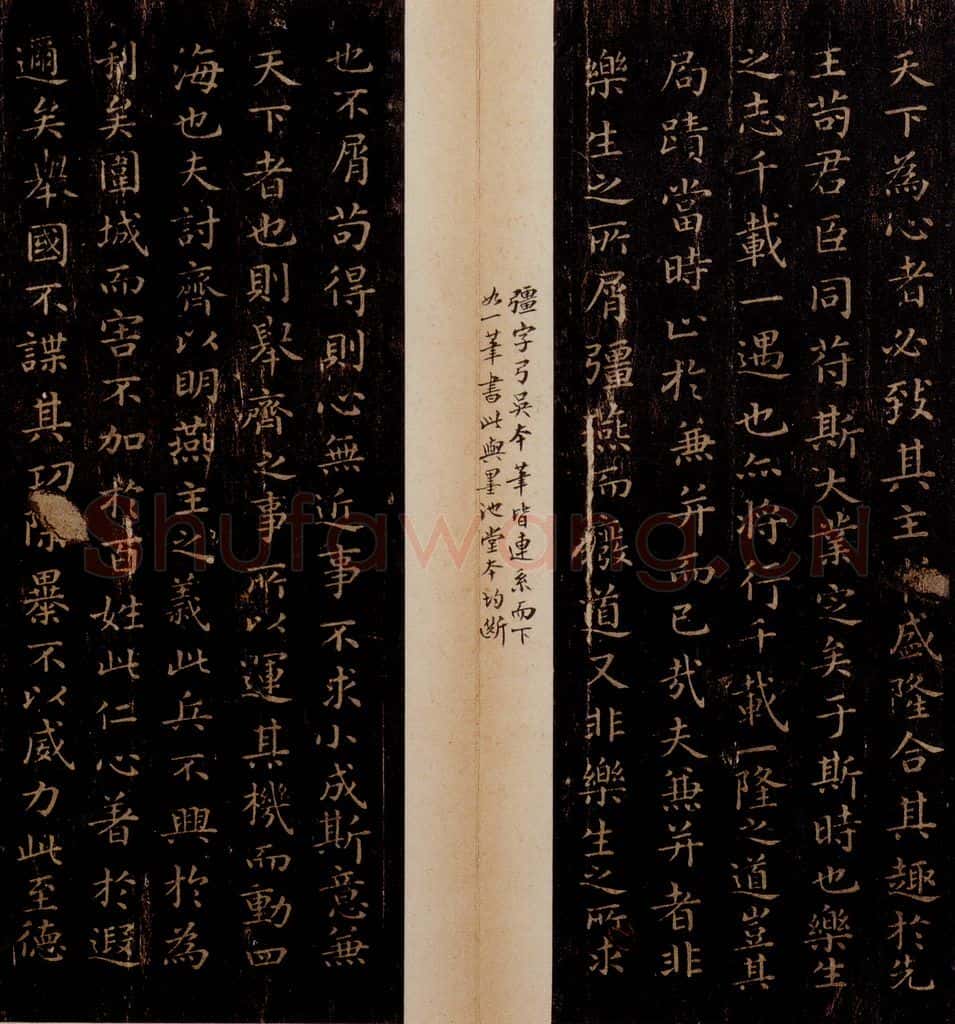 天下為心者必致其主盛隆合其趣於先
王苟君臣同苻斯大業定矣于斯時也樂生
之志千載一遇也亦将行千載一隆之道豈其
局蹟當時止於兼并而已㢤夫兼并者非
樂生之所屑彊燕而廢道又非樂生之所求
彊字弓吳本筆皆連系而下
如一筆書此與墨池堂本均斷
也不屑苟得則心無近事不求小成斯意兼
天下者也則舉齊之事所以運其機而動四
海也夫討齊以明燕主之義此兵不興於為
利矣圍城而害不加於百姓此仁心著於遐
邇矣舉國不謀其功除暴不以威力此至德
Shufawang.CN